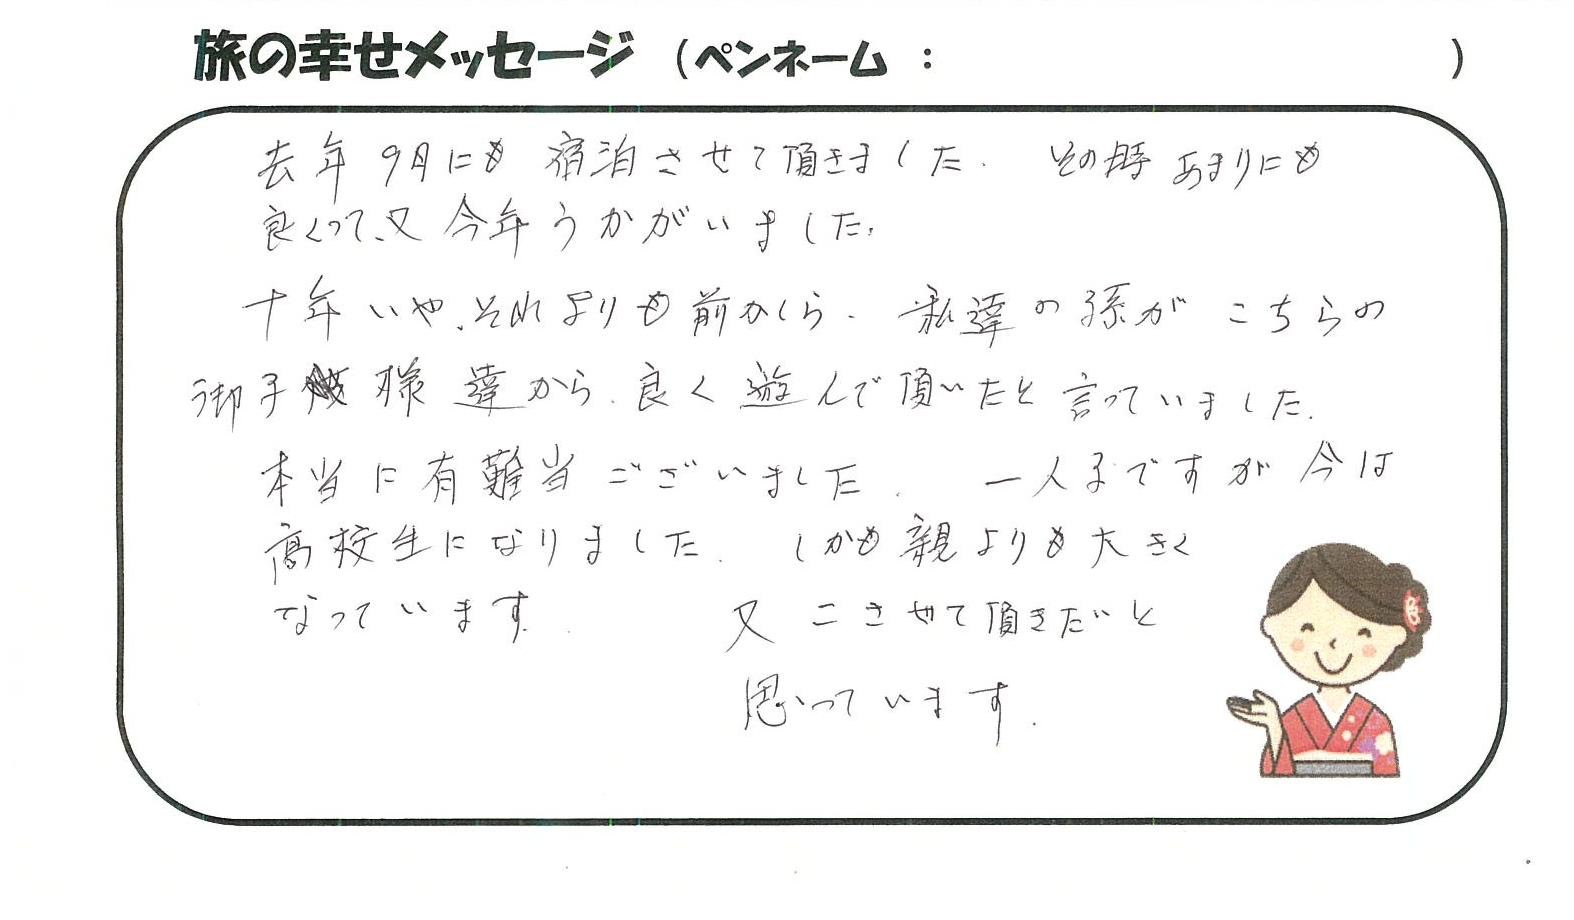 旅の幸せメッセージ （ペンネーム ： ）
去年9月にも 宿泊させて頂きました. その時 あまりにも
良くって、又 今年うかがいました.
十年いや、それよりも前から. 私達の孫が こちらの
御子様達から. 良く遊んで頂いたと 言っていました.
本当に有難当ございました. 一人子ですが 今は
高校生になりました. しかも親よりも大きく
なっています. 又こさせて頂きたいと
思っています.